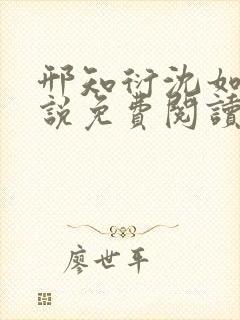 邢知衍沈如
說免費閱讀
廖世平